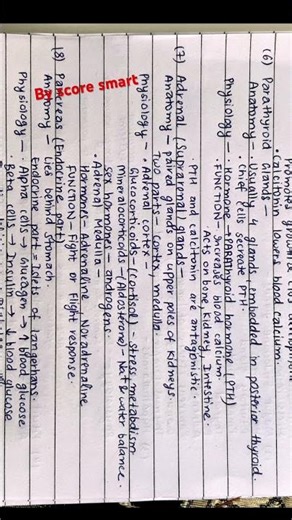 Promotes growth & CNS development
• Calcitonin lowers blood calcium.
(6) Parathyroid Glands
Anatomy - Usually 4 glands embedded in posterior thyroid.
• Chief cells secrete PTH.
Physiology - • Hormone → PARAthyroid hormone (PTH)
• FUNCTION - Increases blood calcium.
Acts on bone, kidney, Intestine.
• PTH and calcitonin are antagonistic.
(7) Adrenal (Suprarenal) glands -
Anatomy - Paired glands on upper poles of kidneys.
Two parts - cortex, medulla.
Physiology - • Adrenal cortex -
Glucocorticoids - (cortisol) - stress, metabolism
Mineralocorticoids - (Aldosterone) - Na+ & water balance.
Sex hormones - androgens.
• Adrenal Medulla -
Hormones - Adrenaline, Noradrenaline
FUNCTION - Fight or Flight response.
(8) Pancreas (Endocrine part)
Anatomy - Lies behind stomach.
Endocrine part = Islets of Langerhans.
Physiology - • Alpha cells → Glucagon → ↑ blood glucose
Beta cells → Insulin → ↓ blood glucose
By score smart